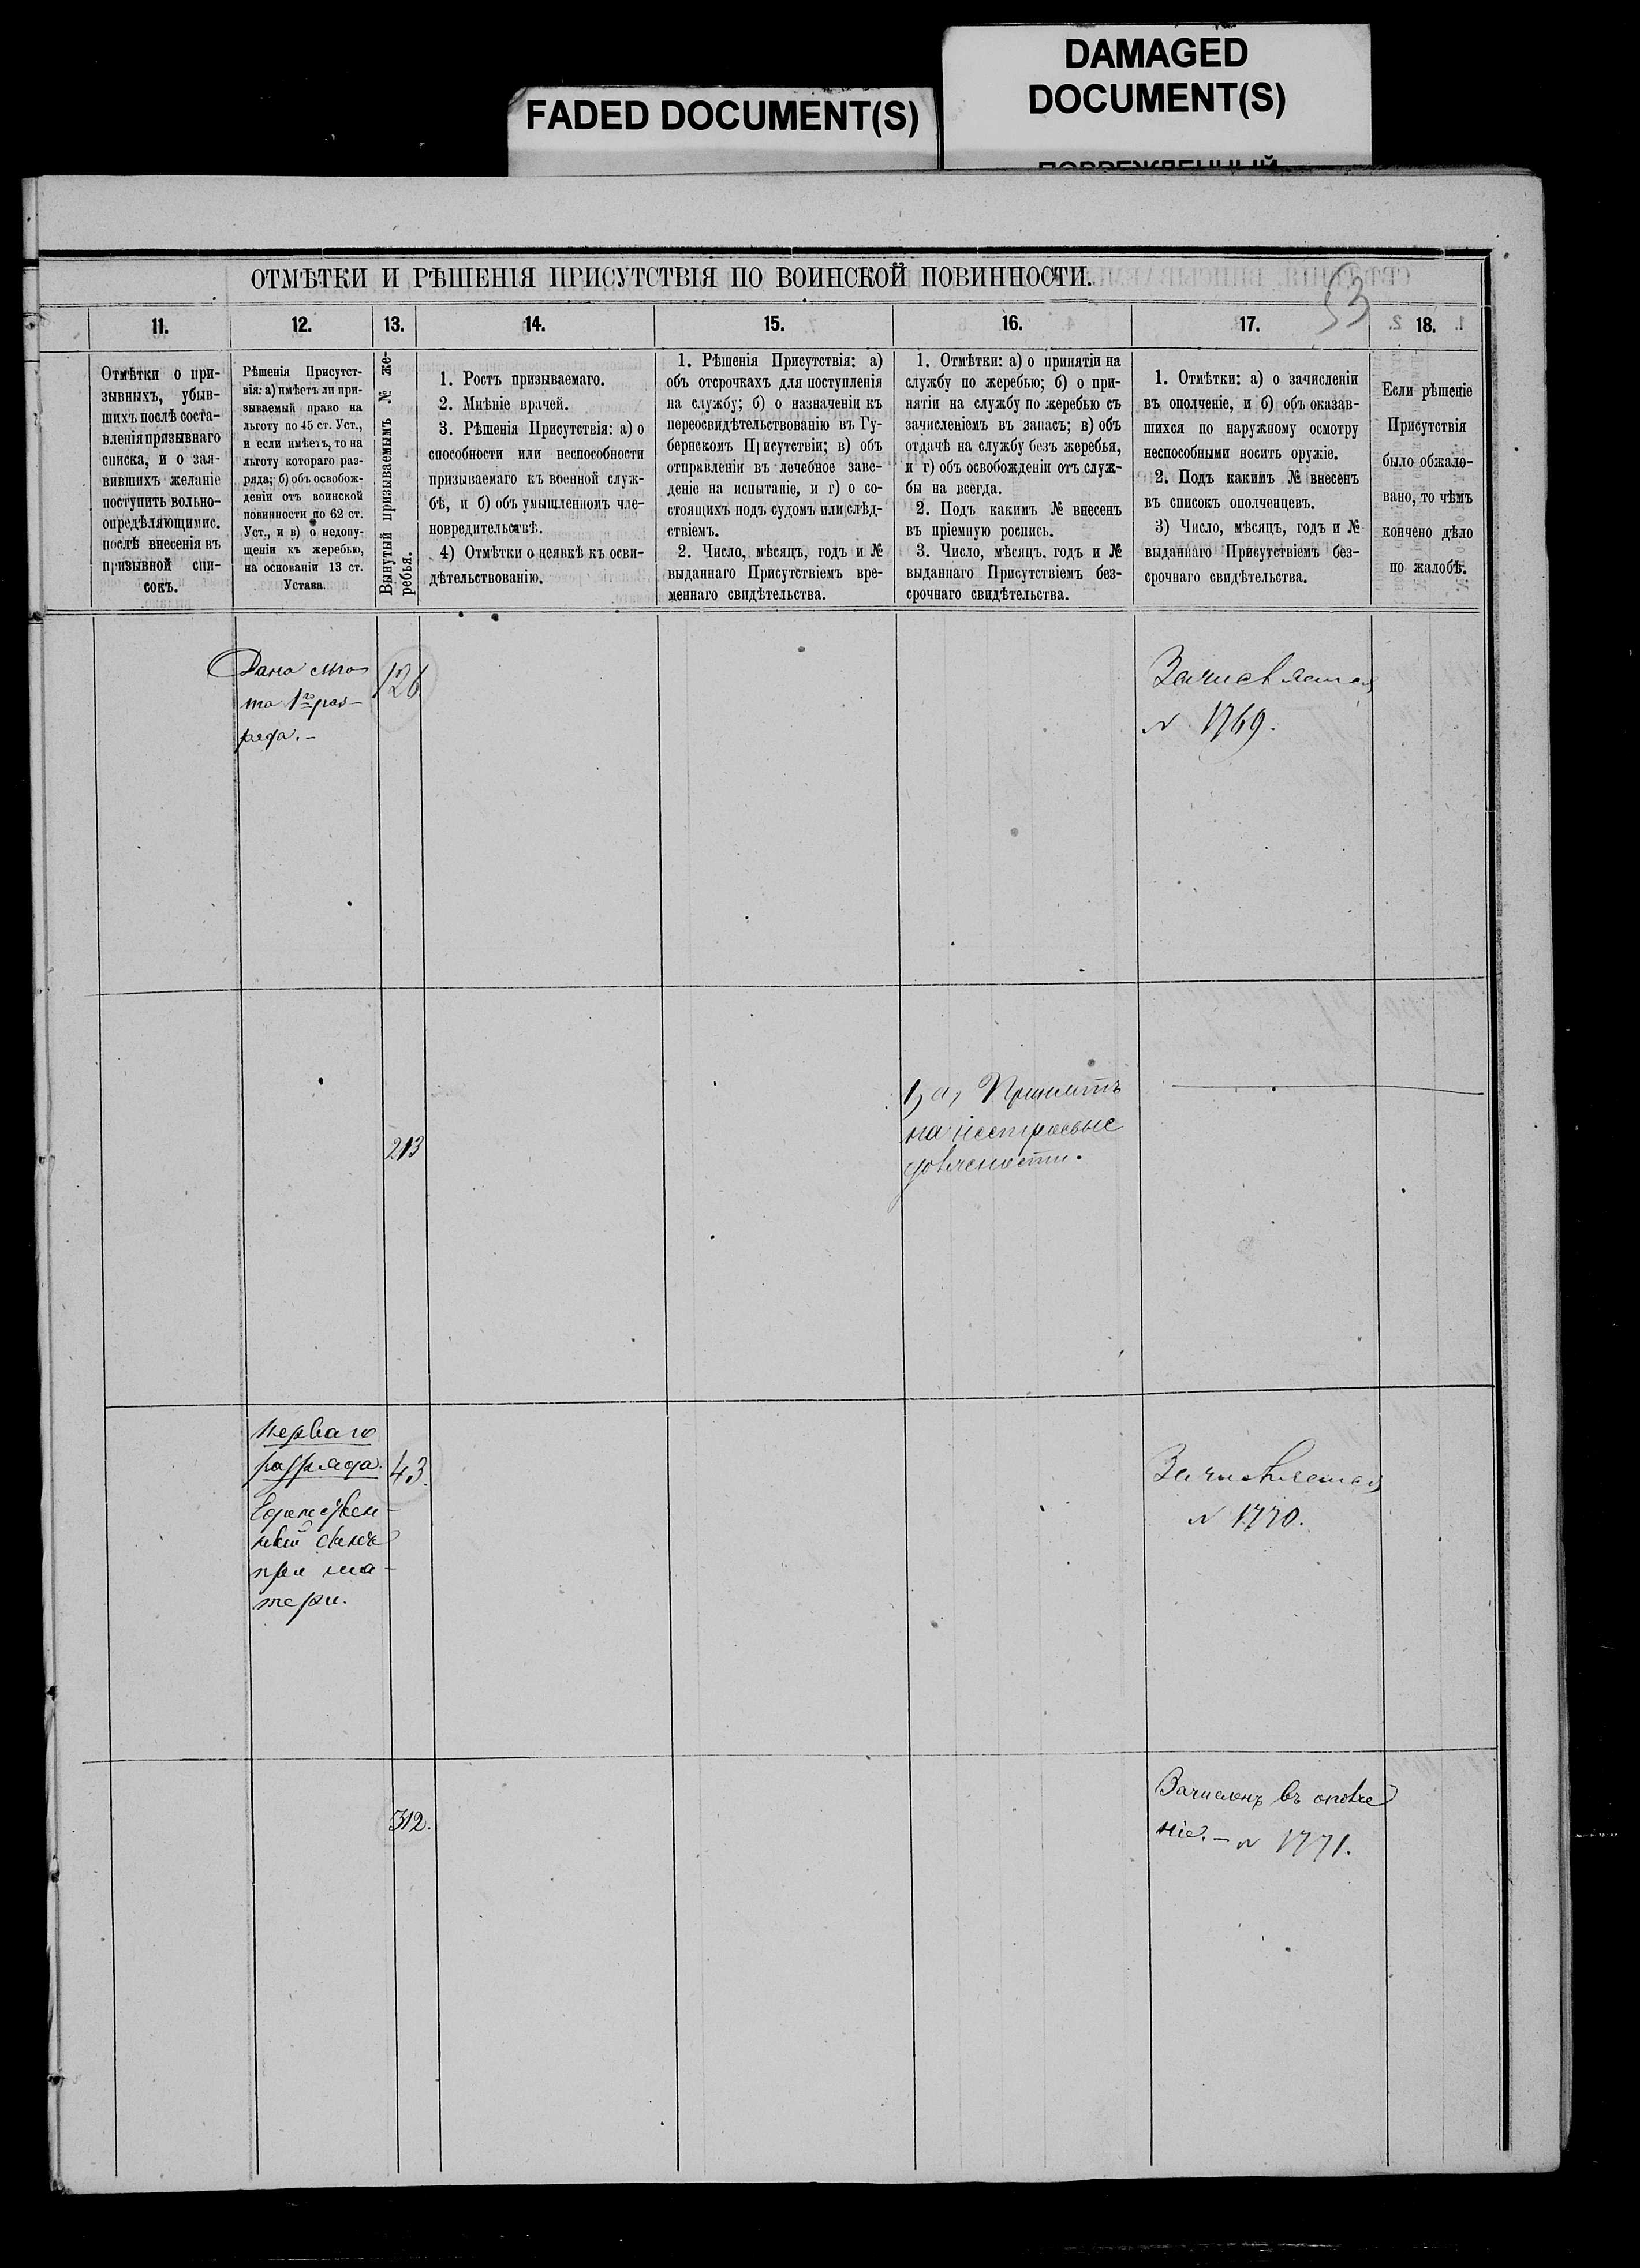 FADED DOCUMENT(S)
DAMAGED
DOCUMENT(S)
ОТМѢТКИ И РѢШЕНІЯ ПРИСУТСТВІЯ ПО ВОИНСКОЙ ПОВИННОСТИ.
53
11.
12.
13.
14.
15.
16.
17.
18.
Отмѣтки о при-
зывныхъ, убыв-
шихъ послѣ соста-
вленія призывнаго
списка, и о зая-
вившихъ желаніе
поступить вольно-
опредѣляющимис.
послѣ внесенія въ
призывной спи-
сокъ.
Рѣшенія Присутст-
вія: а) имѣетъ ли при-
зываемый право на
льготу по 45 ст. Уст.,
и если имѣетъ, то на
льготу котораго раз-
ряда; б) объ освобож-
деніи отъ воинской
повинности по 62 ст.
Уст., и в) о недопу-
щеніи къ жеребью,
на основаніи 13 ст.
Устава.
Вынутый призываемымъ № же-
ребья.
1. Ростъ призываемаго.
2. Мнѣніе врачей.
3. Рѣшенія Присутствія: а) о
способности или неспособности
призываемаго къ военной служ-
бѣ, и б) объ умышленномъ чле-
новредительствѣ.
4) Отмѣтки о неявкѣ къ осви-
дѣтельствованію.
1. Рѣшенія Присутствія: а)
объ отсрочкахъ для поступленія
на службу; б) о назначеніи къ
переосвидѣтельствованію въ Гу-
бернскомъ Присутствіи; в) объ
отправленіи въ лечебное заве-
деніе на испытаніе, и г) о со-
стоящихъ подъ судомъ или слѣд-
ствіемъ.
2. Число, мѣсяцъ, годъ и №
выданнаго Присутствіемъ вре-
меннаго свидѣтельства.
1. Отмѣтки: а) о принятіи на
службу по жеребью; б) о при-
нятіи на службу по жеребью съ
зачисленіемъ въ запасъ; в) объ
отдачѣ на службу безъ жеребья,
и г) объ освобожденіи отъ служ-
бы на всегда.
2. Подъ какимъ № внесенъ
въ пріемную роспись.
3. Число, мѣсяцъ, годъ и №
выданнаго Присутствіемъ без-
срочнаго свидѣтельства.
1. Отмѣтки: а) о зачисленіи
въ ополченіе, и б) объ оказав-
шихся по наружному осмотру
неспособными носить оружіе.
2. Подъ какимъ № внесенъ
въ списокъ ополченцевъ.
3) Число, мѣсяцъ, годъ и №
выданнаго Присутствіемъ без-
срочнаго свидѣтельства.
Если рѣшеніе
Присутствія
было обжало-
вано, то чѣмъ
кончено дѣло
по жалобѣ.
Дана льго
та 1го раз-
ряда. —
126
Зачисляется
№ 1769.
213
1, а, Принятъ
на нестроевые
должности.
Перваго
разряда.
Единствен-
ный сынъ
при ма-
тери.
43.
Зачисляется
№ 1770.
312.
Зачисленъ въ ополче
ніе. — № 1771.